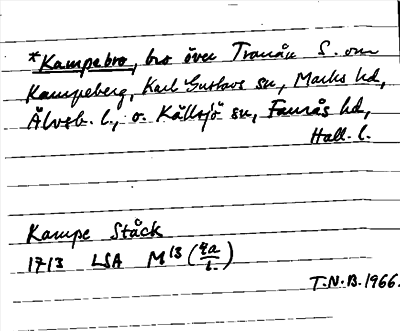 *Kampebro, bro över Tranån S. om
Kampeberg, Karl Gustavs sn, Marks hd,
Älvsb. l., o. Källsjö sn, Faurås hd,
Hall. l.
Kampe Ståck
1713 LSA M13 (
T.N.B. 1966.